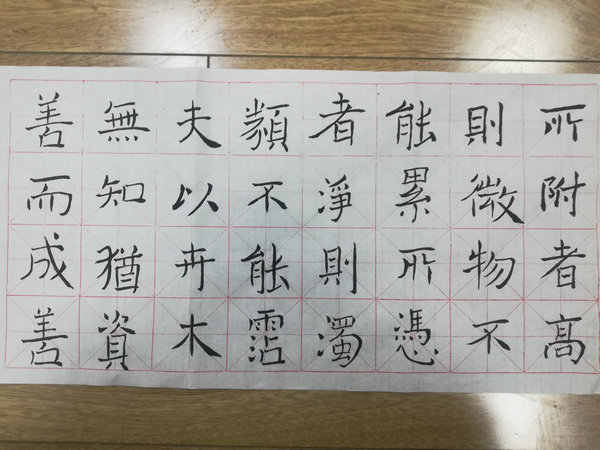 所附者高
則微物不
能累所憑
者淨則濁
類不能霑
夫以卉木
無知猶資
善而成善